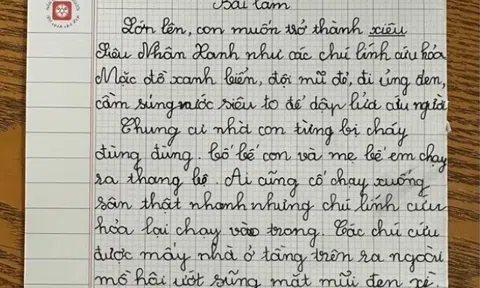 Bài làm
Lớn lên, con muốn trở thành xiêu
Siêu Nhân Xanh như các chú lính cứu hỏa
Mặc đồ xanh biển, đội mũ đỏ, đi ủng đen,
cầm súng nước siêu to để dập lửa cứu người.
Chung cư nhà con từng bị cháy
đùng đùng. bố bế con và mẹ bế em chạy
ra thang bộ. Ai cũng cố chạy xuống
sân thật nhanh nhưng chú lính cứu
hỏa lại chạy vào trong. Các chú cứu
được mấy nhà ở tầng trên ra ngoài
mồ hôi ướt sũng mặt mũi đen xì.